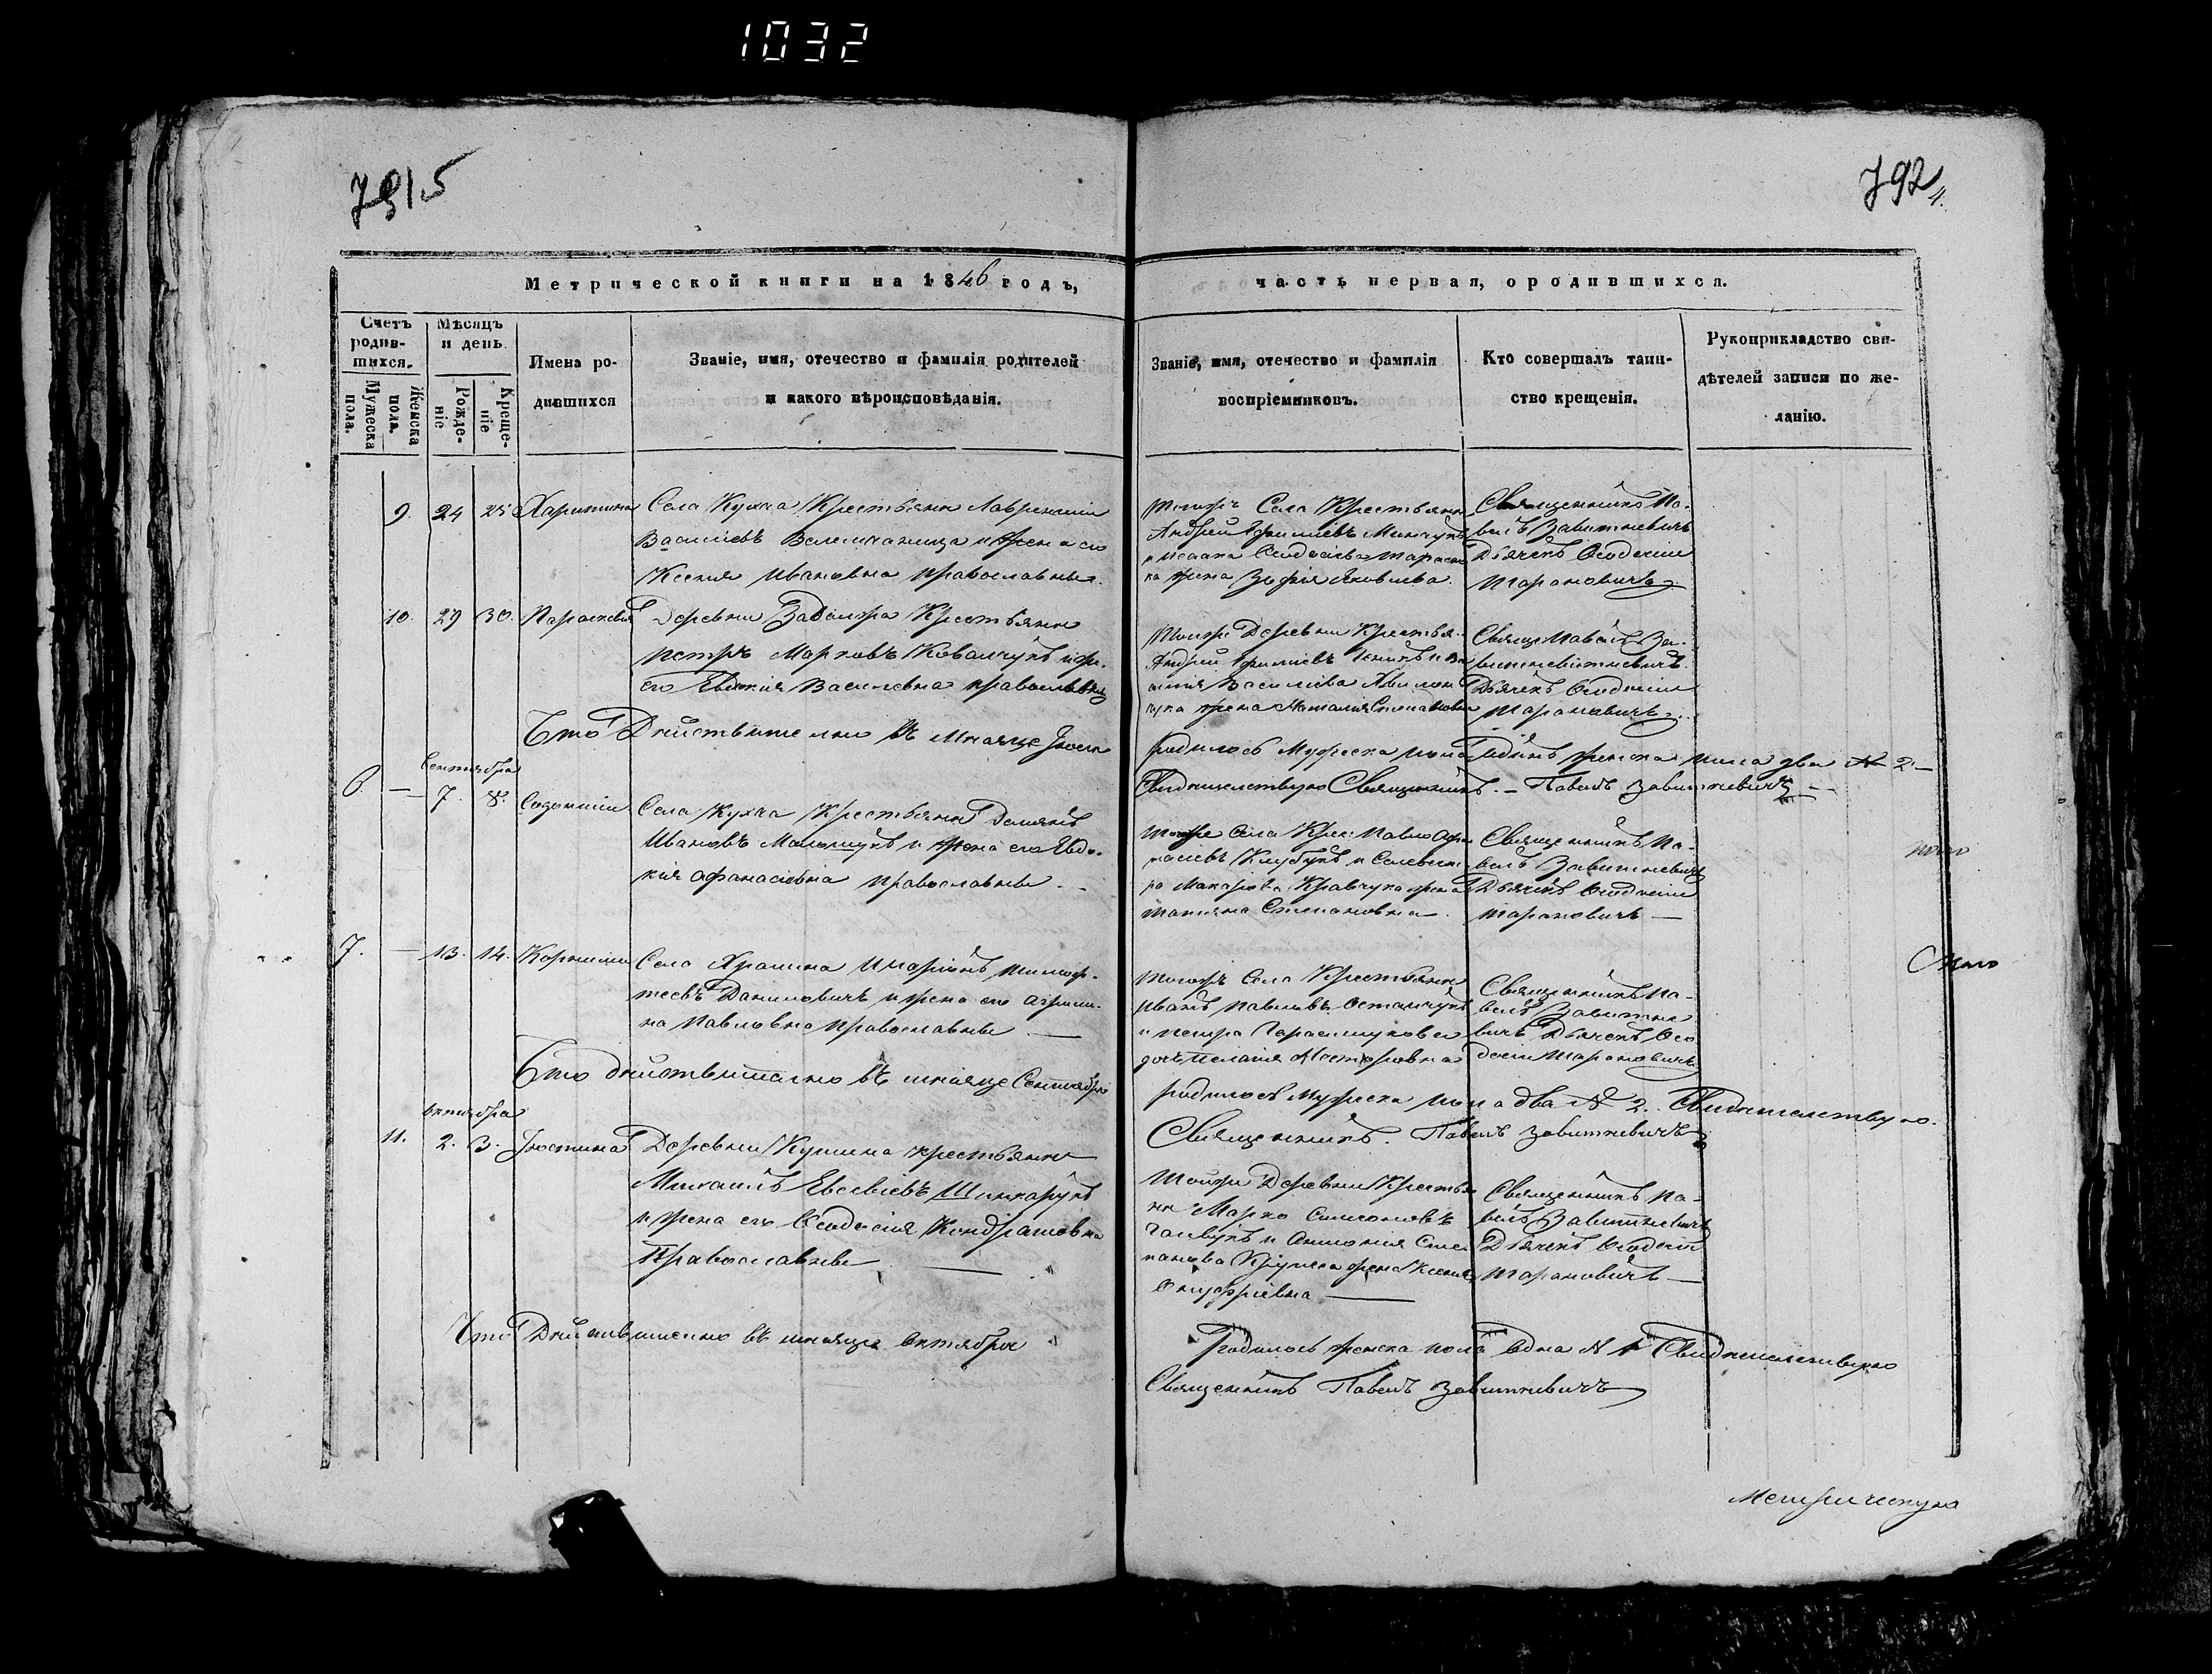 1032
7915
792
4.
Метрической книги на 1846 годъ,
часть первая, ородившихся.
Счетъ родив-шихся.
Мужеска пола.
Женска пола.
Мѣсяцъ и день
Рожде-ніе
Креще-ніе
Имена ро-
дившихся
Званіе, имя, отечество и фамилія родителей
и какого вѣроисповѣданія.
Званіе, имя, отечество и фамилія
воспріемниковъ.
Кто совершалъ таин-
ство крещенія.
Рукоприкладство сви-
дѣтелей записи по же-
ланію.
9. 24 25 Харитина
Села Кухча Крестьяне Лаврентій
Василіевъ и жена его
Ксенія Ивановна православные.
Тогожъ Села Крестьяне
Андрей
жена Зофія Яковлева.
Священникъ Па-
велъ Завитневичъ
Дьячекъ Ѳеодосій
Тарановичъ
10. 29 30. Параскевія
Деревни Задолжа Крестьяне
Петръ Марковъ Ковальчукъ и же.
его Евдокія Василевна православные
Тойже Деревни Крестья-
Андрей
Василіева
жена Наталія Степановна
Свяще Павелъ За-
Дьячекъ Ѳеодосій
Тарановичъ
Что Дѣйствительно въ Мѣсяцѣ
родилось Мужеска пола Одинъ женска пола два № 2.
Свидѣтельствую Священникъ. Павелъ Завитневичъ
Сентября
6. — 7. 8. Созонтій
Села Кухча Крестьяне Даміянъ
Ивановъ и жена его Евдо-
кія Афанасіевна православные
Тогоже Села Крес: Павло Афа-
насіевъ и
Макарова Кравчука жена
Татіяна Степановна.
Священникъ Па-
велъ Завитневичъ
Дьячекъ Ѳеодосій
Тарановичъ
7. — 13. 14. Корнилій
Села Храпина Иларіонъ Тимоф-
теевъ Даниловичъ и жена его Агрипи-
на Павловна Православные
Тогожъ Села Крестьяне
Иванъ Павловъ Остапчукъ
и Петра
дочь Пелагія
Священникъ Па-
велъ Завитне
вичъ Дьячекъ Ѳео
досій Тарановичъ
Что дѣйствительно въ мѣсяцѣ Сентябрѣ
родилось Мужеска пола два № 2. Свидѣтельствую.
Священникъ. Павелъ Завитневичъ
октября
11. 2. 3. Іюстина
Деревни Кутина крестьяне
Михаилъ Евсевіевъ Шинкарукъ
и жена его Ѳеодосія Кондратовна
Православные
Тойже Деревни Крестья
не Марко Симеоновъ
и Антонія Сте
панова жена Ксенія
Онуфріевна
Священникъ Па-
велъ Завитневичъ
Дьячекъ Ѳеодосій
Тарановичъ
Что Дѣйствительно въ мѣсяцѣ октябрѣ
Родилось женска пола одна № 1 Свидѣтельствую
Священникъ Павелъ Завитневичъ
Метрическую